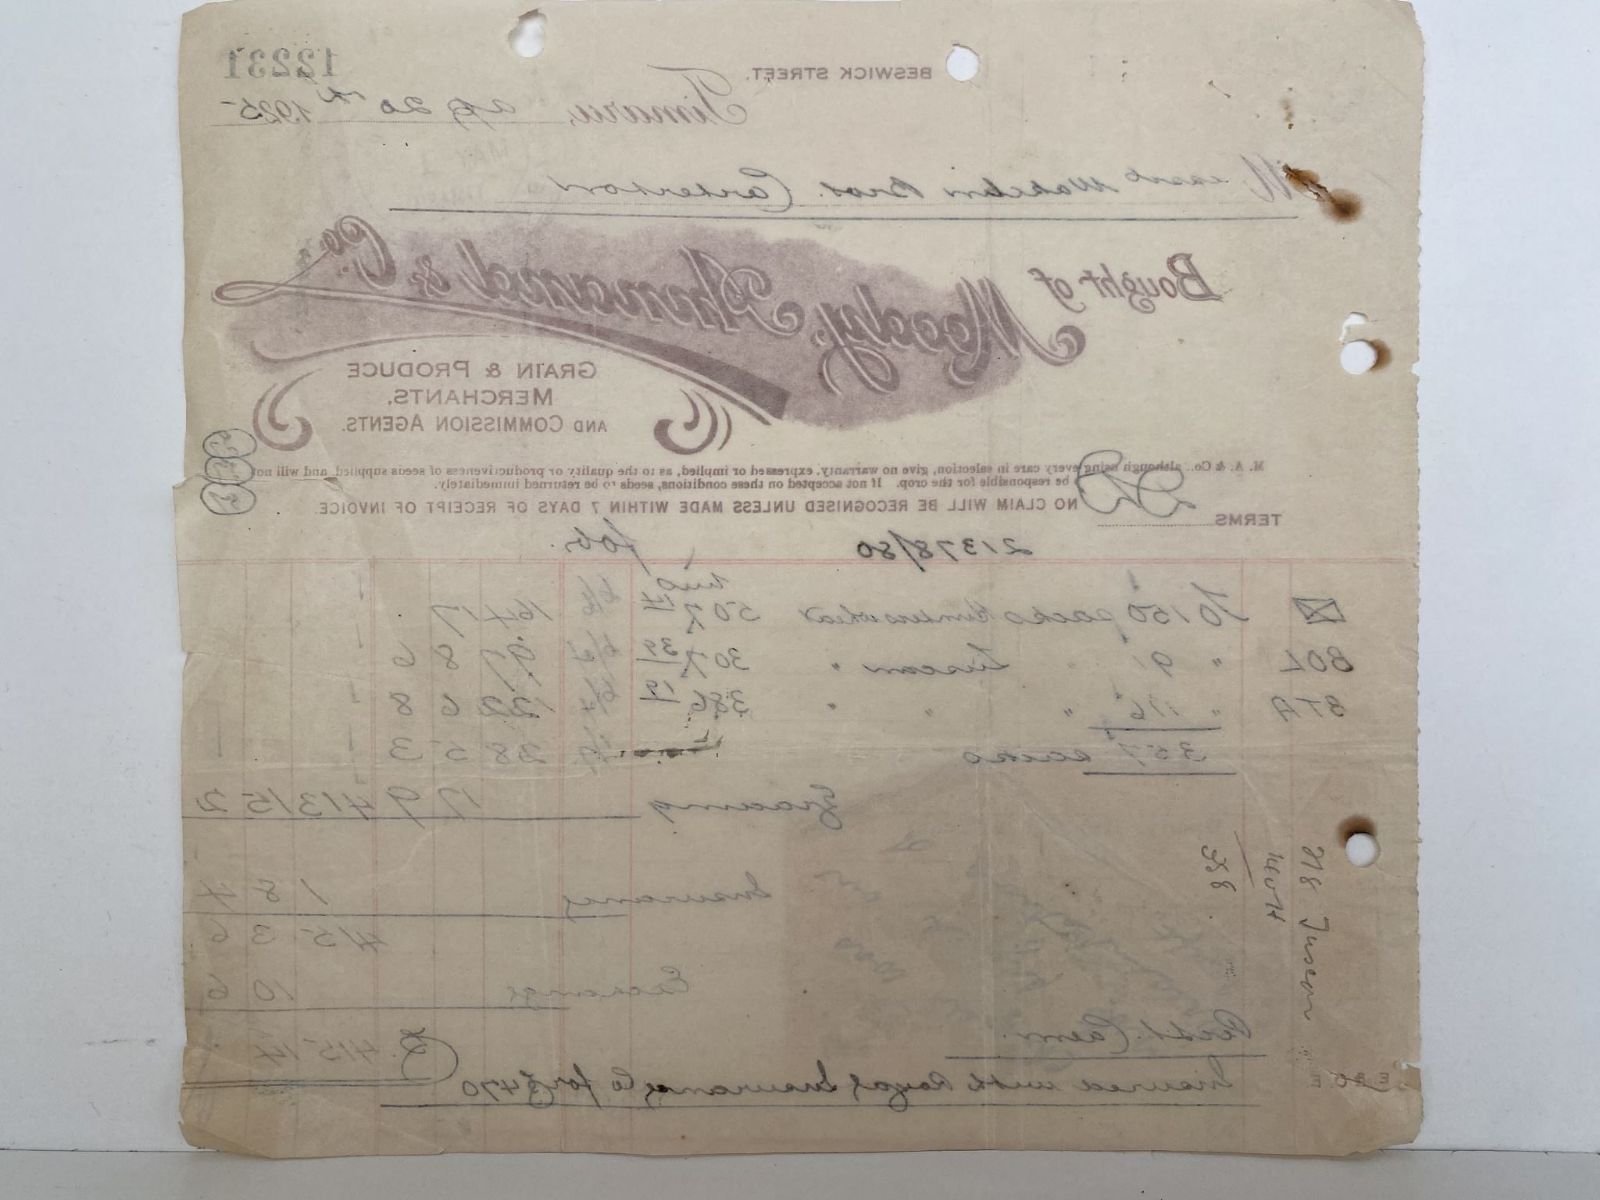 12231
BESWICK STREET.
Timaru, 20th 1925
Messrs Wakelin Bros. Carterton
Bought of Moody, & Co.
GRAIN & PRODUCE
MERCHANTS.
AND COMMISSION AGENTS.
M. A. & Co., although using every care in selection, give no warranty, expressed or implied, as to the quality or productiveness of seeds supplied, and will not
be responsible for the crop. If not accepted on these conditions, seeds to be returned immediately.
NO CLAIM WILL BE RECOGNISED UNLESS MADE WITHIN 7 DAYS OF RECEIPT OF INVOICE.
TERMS
21378/80 fob.
To 150 sacks Hunters wheat 507 14 164 17
BOL " 91 " Tuscan " 307 39 97 8 6
BTA " 116 " " " 386 19 122 6 8
357 sacks 28 5 3
Grading 17 9 413 15 2
Insurance 1 8 4
415 3 6
Exchange 10 6
£415 14
Insured with Royal Insurance Co for £470
E & O E
218 Tuscan
358